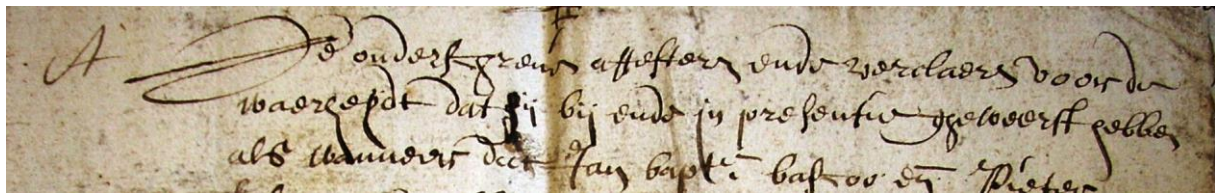 A De onderschreven attesteren ende verclaeren voor de
waerheydt dat sij bij ende in presentie gheweest hebben
als wanneer dat Jan bapt. en Pieter